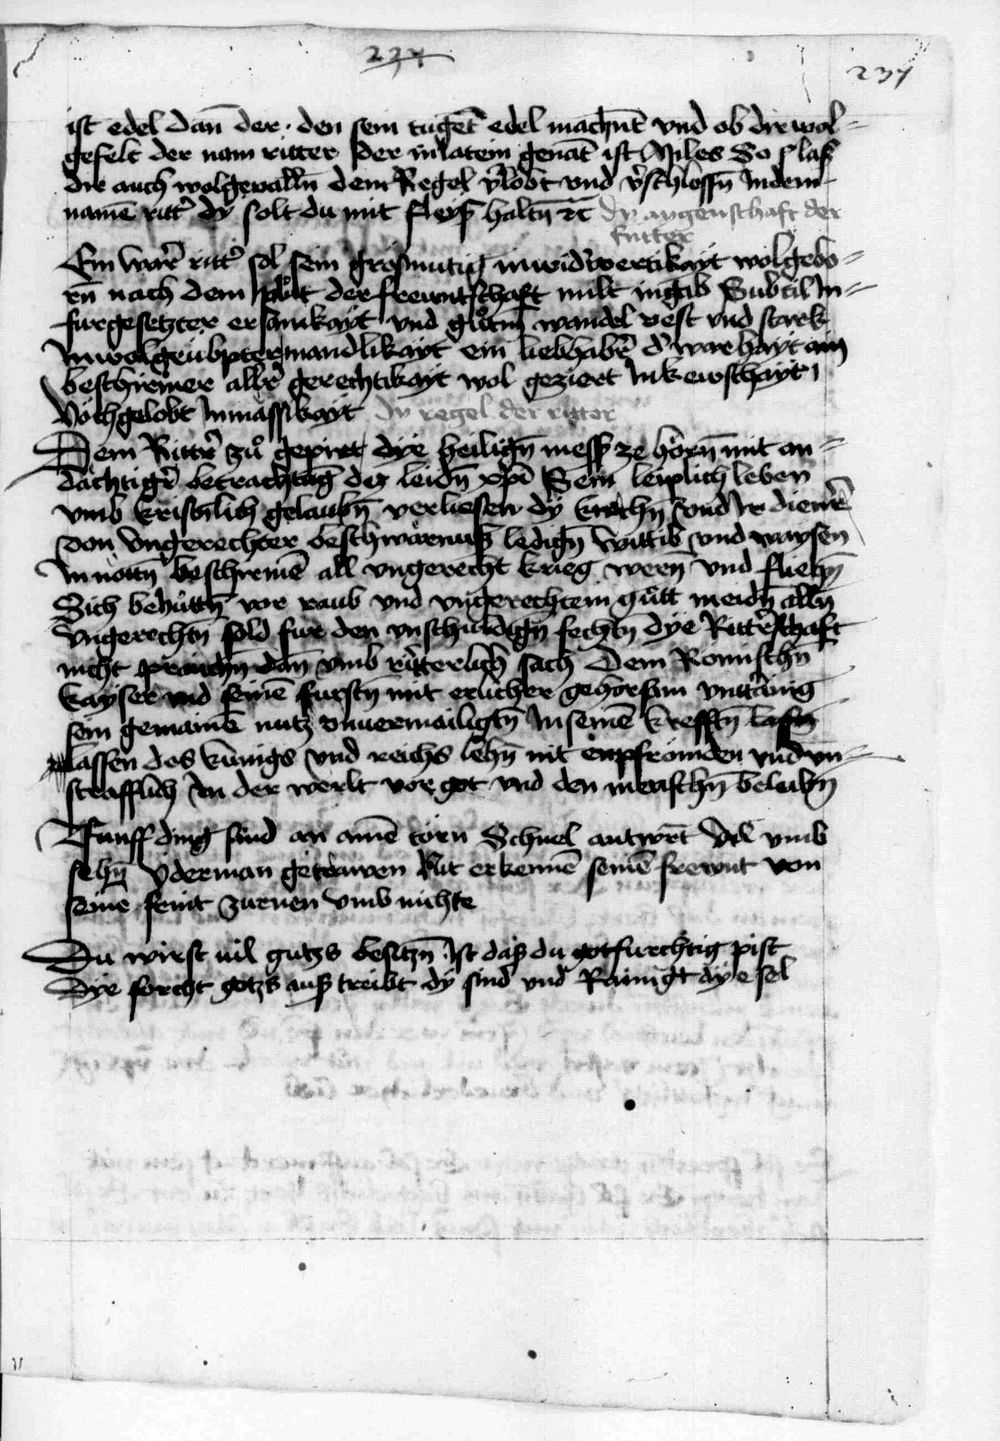 237
237
ist edel dan̄ der · den sein tugēt edel machn̄t vnd ob dir wol=
gefelt der nam ritter der in latein genāt ist Miles So slaß
dir auch wolgeualln̄ dem Regel v̄lobt vnd v̄schlossn̄ In dem
namē ritt' dy solt du mit fleiß haltn̄ ꝛc dy aygenschaft der
ritter
Ein war' ritt' sol sein großmutig in widerwertikayt wolgebo=
rn̄ nach dem plůt der freuntschaft milt in gab Subtil In=
furgesetzter ersamkayt vnd gůtm̄ wandel vest vnd stark
In wolgeubpter mandlikayt ein liebhaber d' warhayt ain
beschirmer aller gerechtikayt wol geziert In kewschayt
Hochgelobt In massikayt dy regel der ritter
Dem Ritter zů gepirt dye heilign̄ mess ze hörn̄ mit an=
dächtiger betrachtūg des leidn̄ xp̄i Sein leiplich leben
vmb kristnlich gelaubn̄ verliesen dy kirchn̄ vnd Ir diener
von vngerechter beschwärnuß ledign̄ wittib vnd waysen
In nottn̄ beschirmē all vngerecht krieg wern̄ vnd fliehn̄
Sich behüttn̄ vor raub vnd vngerechtem gůtt meidn̄ alln̄
vngerechtn̄ sold fur den vnschuldign̄ fechtn̄ dye Ritterschaft
nicht prauchn̄ dan̄ vmb ritterlich sach Dem Romischn̄
kayser vnd seinē furstn̄ mit erlicher gehorsam vnttänig
sein gemainē nutz vnuermailigtn̄ In seinē krefftn̄
lassen des kunigs vnd reichs lehn̄ nit enpfrömden vnd vn=
strafflich In der werlt vor got vnd den menschn̄ beleibn̄
Funff ding sind an ainē torn Schnel antwrt̄ vmb
sehn̄ yderman getrawen Nit erkennē seinē frewnt von
seine feint zurnen vmb nichte
Du wirst uil gutzs besitzn̄ Ist daß du gotfurechtig pist
Dye forcht gotzs auß treibt dy sünd vnd Rainigt dye sel